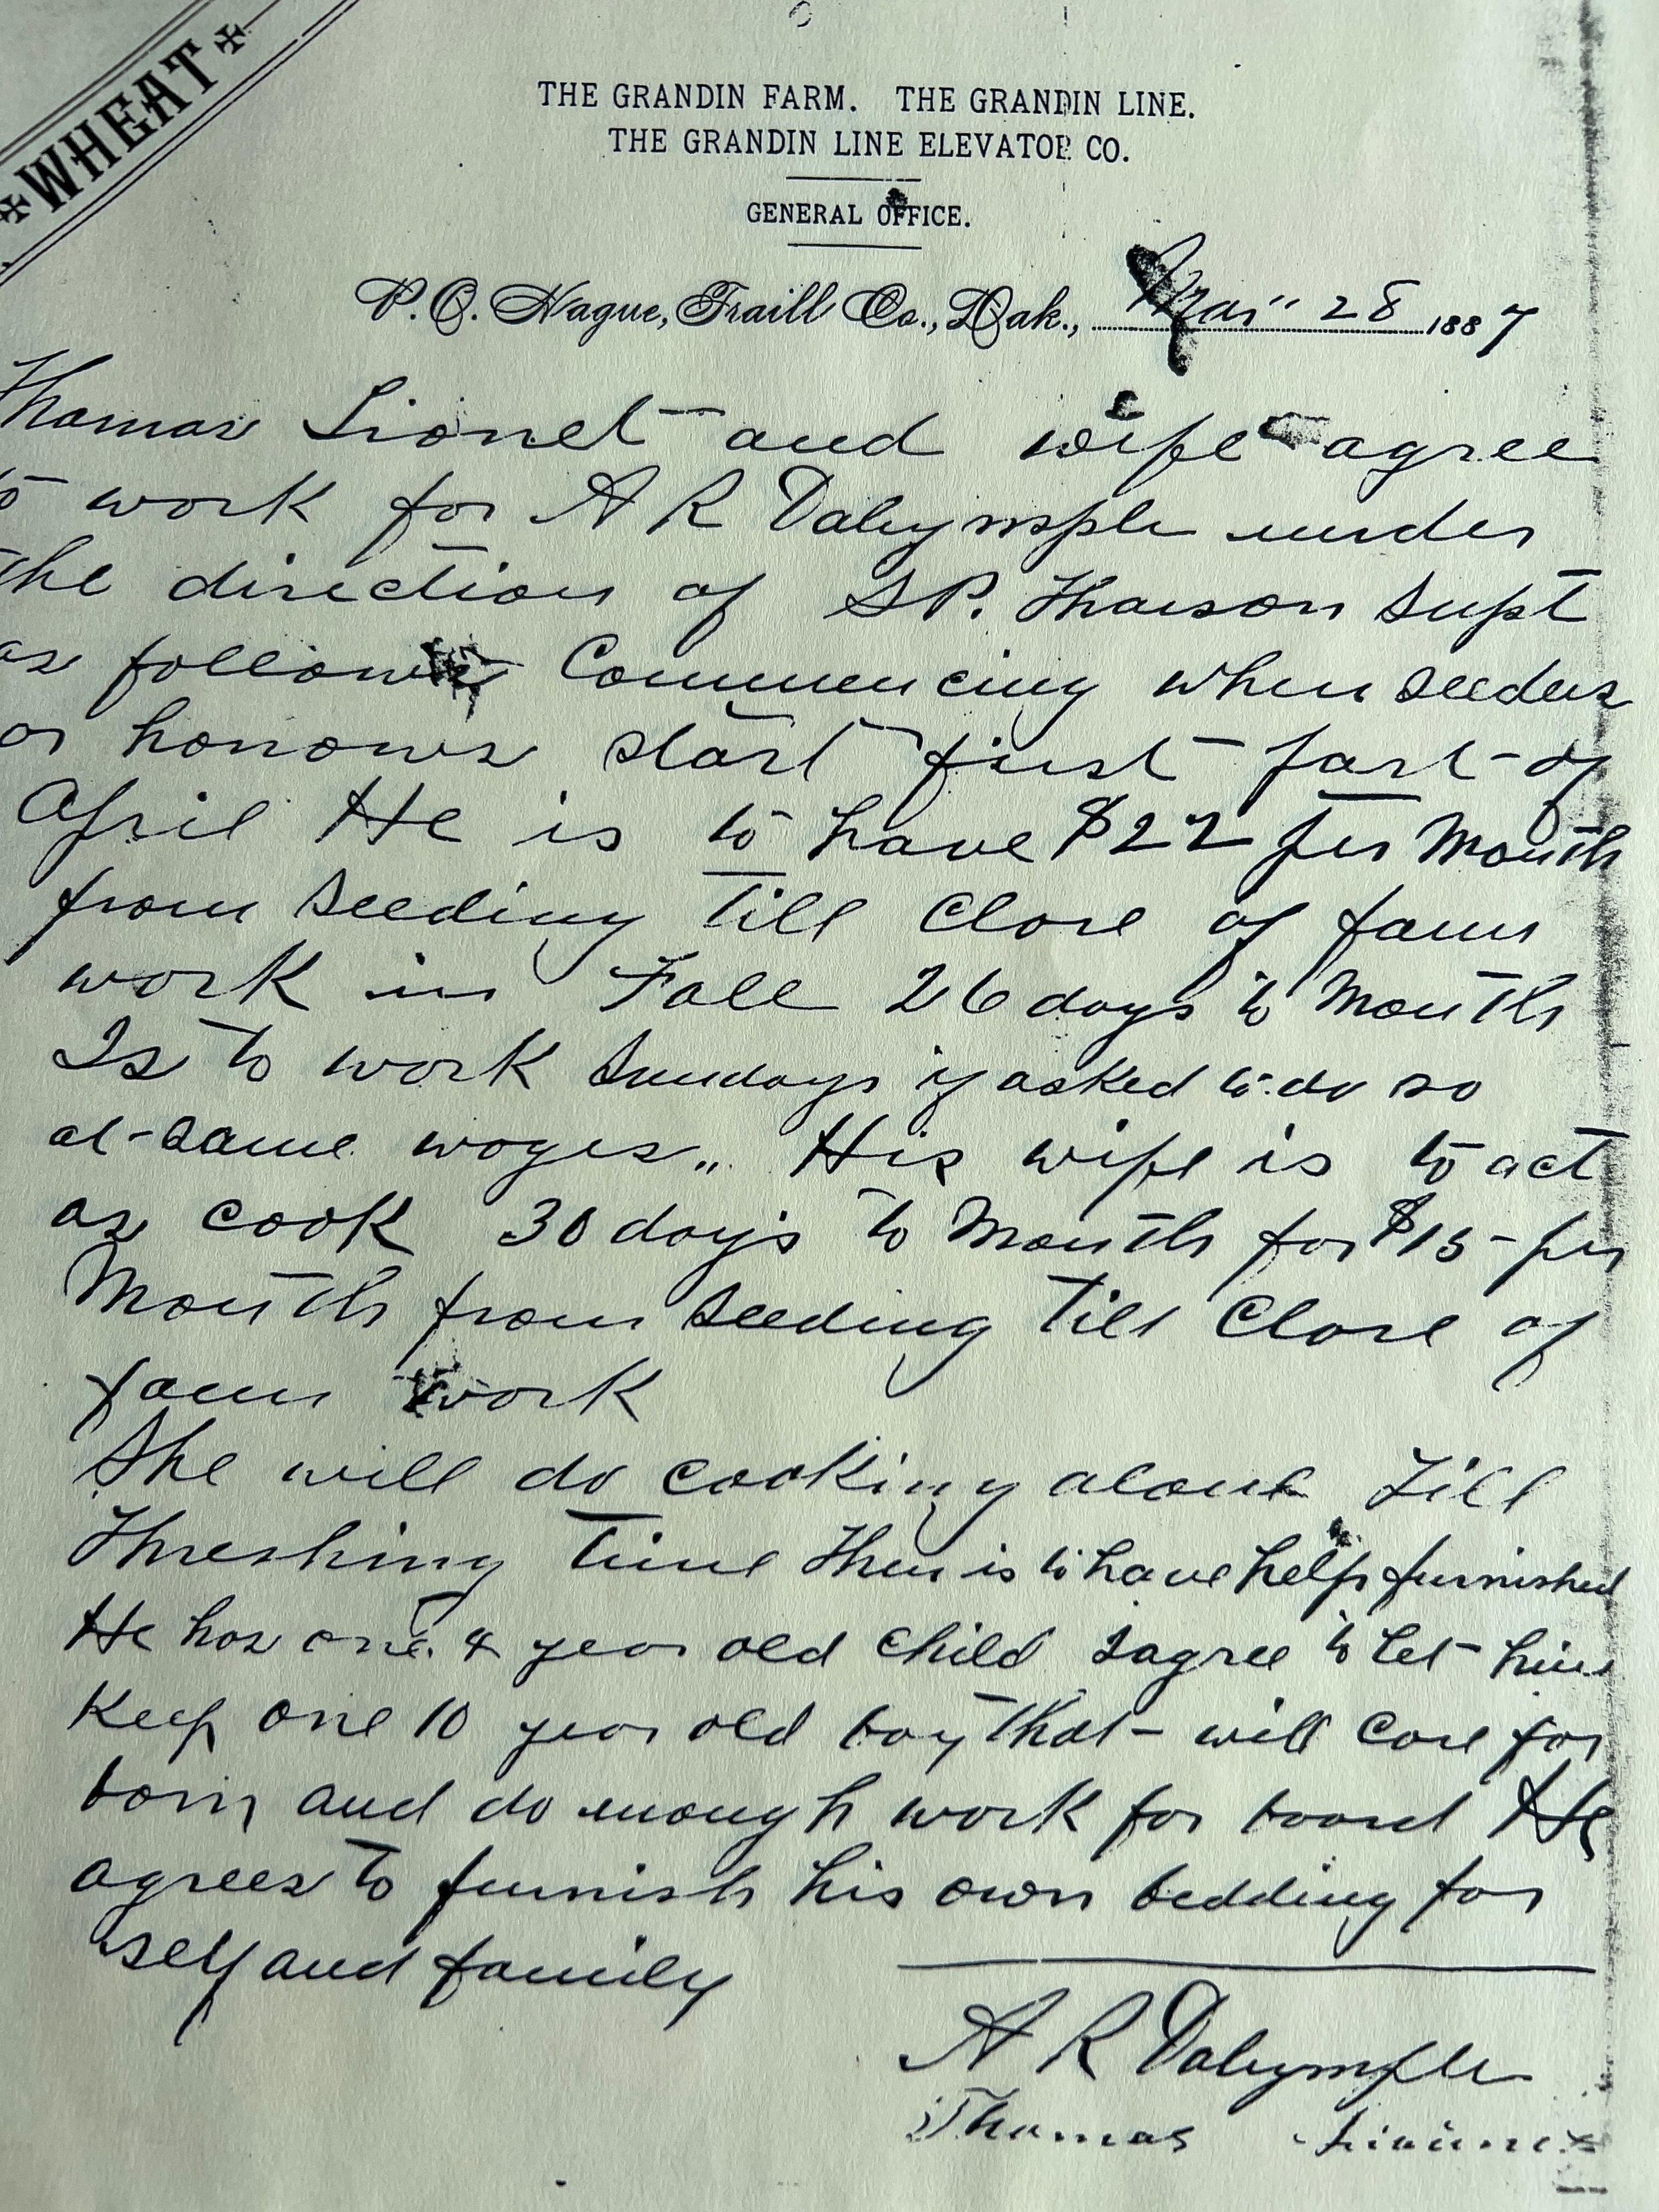 WHEAT
THE GRANDIN FARM. THE GRANDIN LINE.
THE GRANDIN LINE ELEVATOR CO.
GENERAL OFFICE.
P.O. Hague, Traill Co., Dak., Mar" 28 1887
Thomas Lionet and wife agree
to work for A R Dalrymple under
the direction of S P. Thorson Supt
as follows Commencing when seeders
or harrows start first part of
April He is to have $22 per Month
from seeding Till Close of farm
work in Fall 26 days to Month
Is to work Sundays if asked to do so
at same wages„ His wife is to act
as cook 30 days to Month for $15 per
Month from seeding Till Close of
farm work
She will do cooking alone Till
Threshing Time Then is to have help furnished
He has one 4 year old child I agree to let him
Keep one 10 year old boy that will care for
and do enough work for board He
agrees to furnish his own bedding for
self and family
A R Dalrymple
Thomas